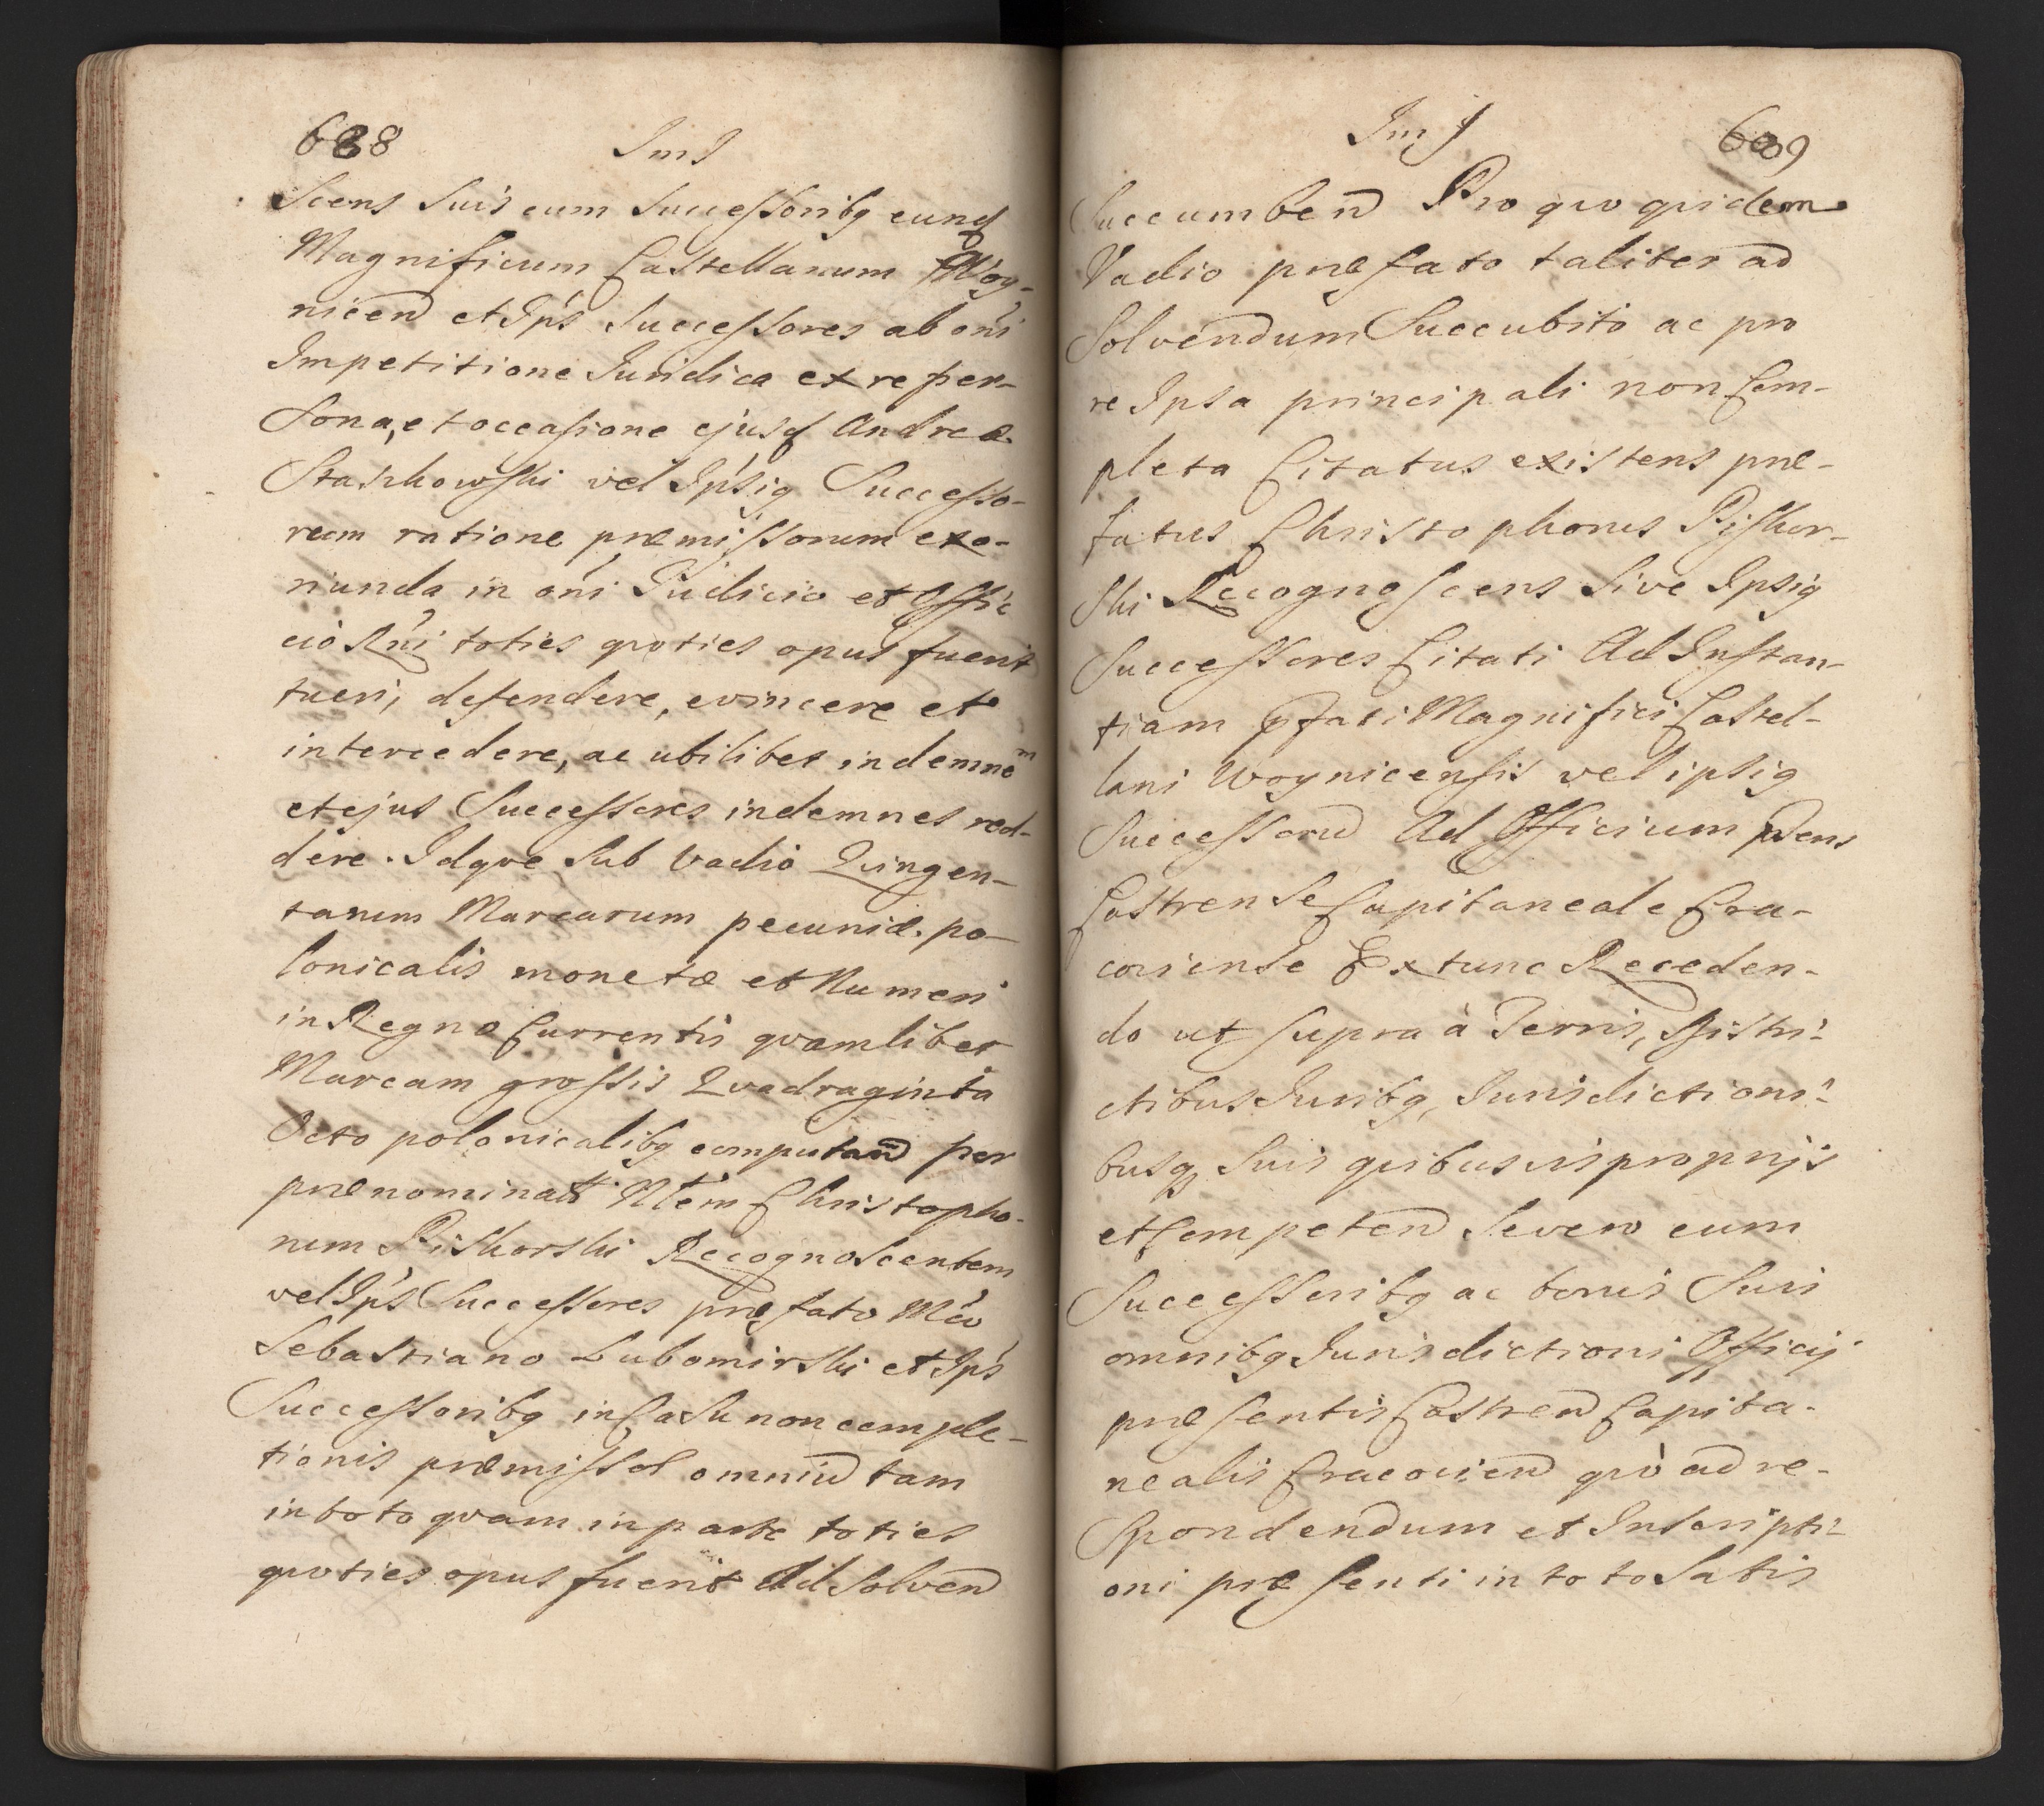 688
ImJ
Scens Suis cum Successoribq eund
Magnificum Castellanum Woy-
nicen et Ips Successores ab oni
Impetitione Juridica ex re per-
sona, et occasione ejusd Andreæ
Staszkowski vel Ipsiq Successo-
rum ratione præmissorum exo-
riunda in oni Judicio et Offi-
cio Rni toties qvoties opus fuerit
tueri, defendere, evincere et
intercedere, ac ubilibet indemnem
et ejus Successores indemnes red-
dere. Idqve sub vadio Qvingen-
tarum Marcarum pecuniæ po-
lonicalis monetæ et Numeri
in Regno Currentis qvamlibet
Marcam grossis Qvadraginta
Octo polonicalibq computan per
prænominatt Ntem Christopho-
rum Piskorski Recognoscentem
vel Ips Successores præfato Mco
Sebastiano Lubomirski et Ips
Successoribq in Casu non comple-
tionis præmissor omniu tam
in toto qvam in parte toties
qvoties opus fuerit Ad Solven
ImJ
689
Succumben Pro qvo qvidem
Vadio præfato taliter ad
Solvendum Succubito ac pro
re Ipsa principali non Com-
pleta Citatus existens præ-
fatus Christophorus Piskor-
ski Recognoscens Sive Ipsiq
Successores Citati Ad Instan-
tiam pfati Magnifici Castel-
lani Woynicensis vel ipsiq
Successoru Ad Officium pdens
Castrense Capitaneale Cra-
coviense Ex tunc Receden-
do ut supra à Terris, Distri-
ctibus Juribq, Jurisdictioni-
busq Suis qvibusvis proprijs
et Competen Se vero cum
Successoribq ac bonis Suis
omnibq Jurisdictioni Officij
præsentis Castren Capita-
nealis Cracovien qvò ad re-
spondendum et Inscripti-
oni præsenti in toto Satis